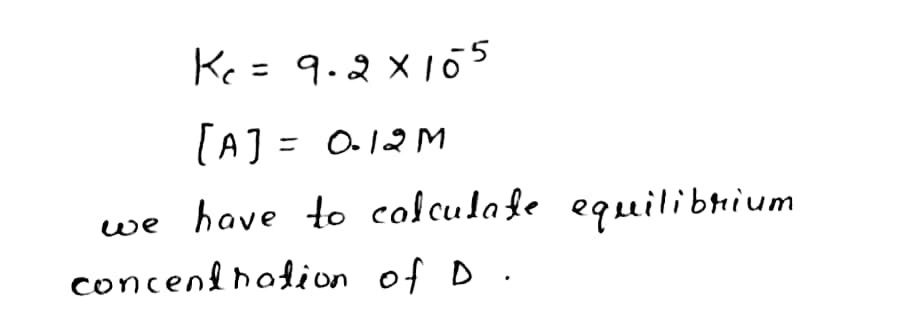 Kc = 9.2 × 10⁻⁵
[A] = 0.12 M
we have to calculate equilibrium
concentration of D .